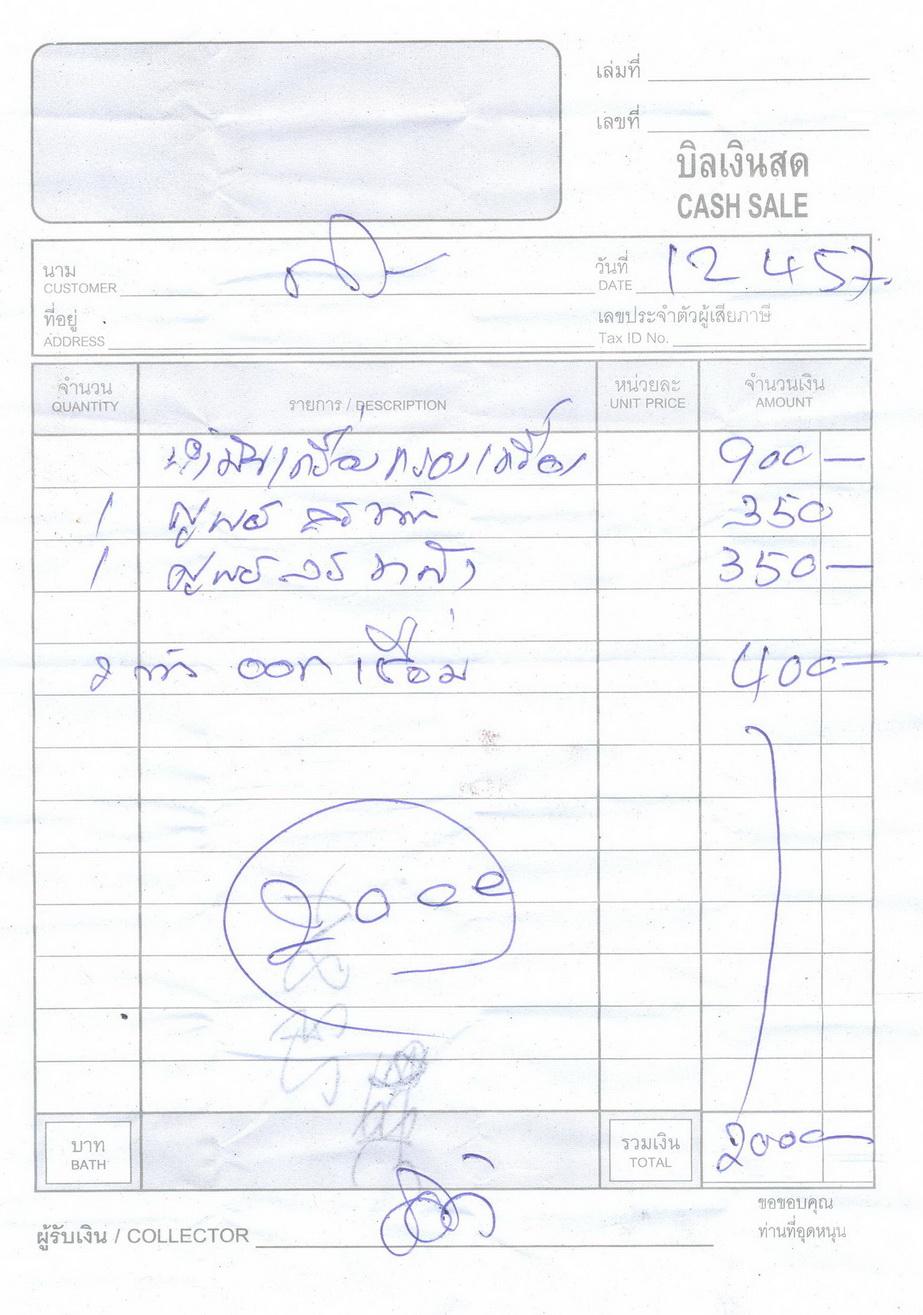 เล่มที่
เลขที่
บิลเงินสด
CASH SALE
นาม
CUSTOMER
วันที่ 12 4 57
DATE
ที่อยู่
ADDRESS
เลขประจำตัวผู้เสียภาษี
Tax ID No.
จำนวน รายการ / DESCRIPTION หน่วยละ จำนวนเงิน
QUANTITY UNIT PRICE AMOUNT
น้ำมันเครื่อง กรองเครื่อง 900 —
1 350
1 350 —
2 400 —
2000
บาท รวมเงิน 2000 —
BATH TOTAL
ขอขอบคุณ
ท่านที่อุดหนุน
ผู้รับเงิน / COLLECTOR